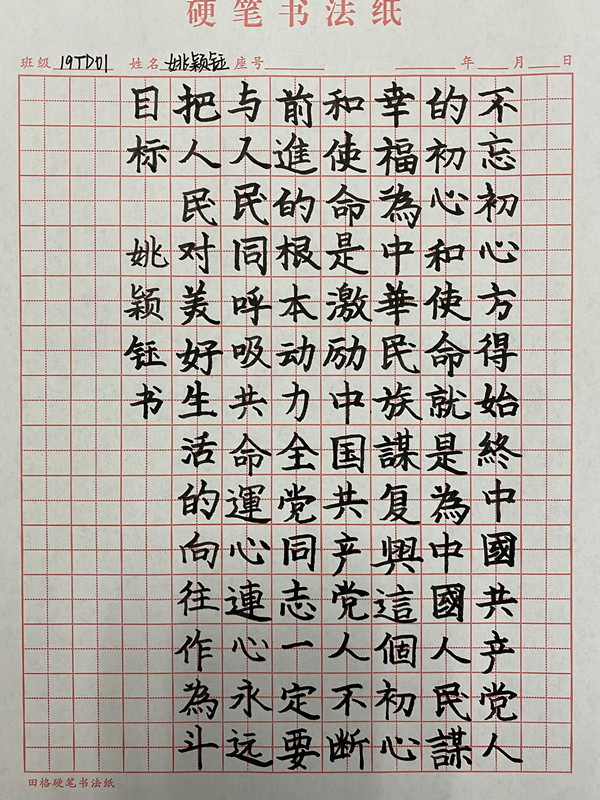 硬笔书法纸
班级 19TD01 姓名 姚颖钰 座号 年 月 日
不忘初心方得始終中國共产党人
的初心和使命就是為中國人民謀
幸福為中華民族謀复興這個初心
和使命是激励中国共产党人不断
前進的根本动力全党同志一定要
与人民同呼吸共命運心連心永远
把人民对美好生活的向往作為斗
目标 姚颖钰书
田格硬笔书法纸